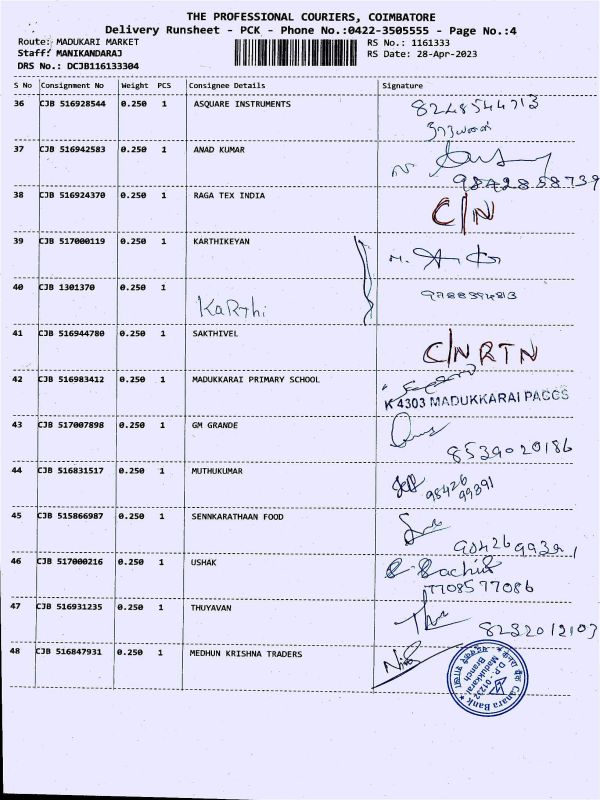 THE PROFESSIONAL COURIERS, COIMBATORE
Delivery Runsheet - PCK - Phone No.:0422-3505555 - Page No.:4
Route: MADUKARI MARKET RS No.: 1161333
Staff: MANIKANDARAJ RS Date: 28-Apr-2023
DRS No.: DCJB116133304
S No Consignment No Weight PCS Consignee Details Signature
36 CJB 516928544 0.250 1 ASQUARE INSTRUMENTS 8248544713
37 CJB 516942583 0.250 1 ANAD KUMAR
9842858739
38 CJB 516924370 0.250 1 RAGA TEX INDIA C/N
39 CJB 517000119 0.250 1 KARTHIKEYAN
40 CJB 1301370 0.250 1
KaRThi
41 CJB 516944780 0.250 1 SAKTHIVEL C/N RTN
42 CJB 516983412 0.250 1 MADUKKARAI PRIMARY SCHOOL
K 4303 MADUKKARAI PACCS
43 CJB 517007898 0.250 1 GM GRANDE
8539020186
44 CJB 516831517 0.250 1 MUTHUKUMAR
98426
99391
45 CJB 515866987 0.250 1 SENNKARATHAAN FOOD
9842699391
46 CJB 517000216 0.250 1 USHAK
7708577086
47 CJB 516931235 0.250 1 THUYAVAN
8232012103
48 CJB 516847931 0.250 1 MEDHUN KRISHNA TRADERS
D.P.-01232
Madukkarai
Branch
Canara Bank